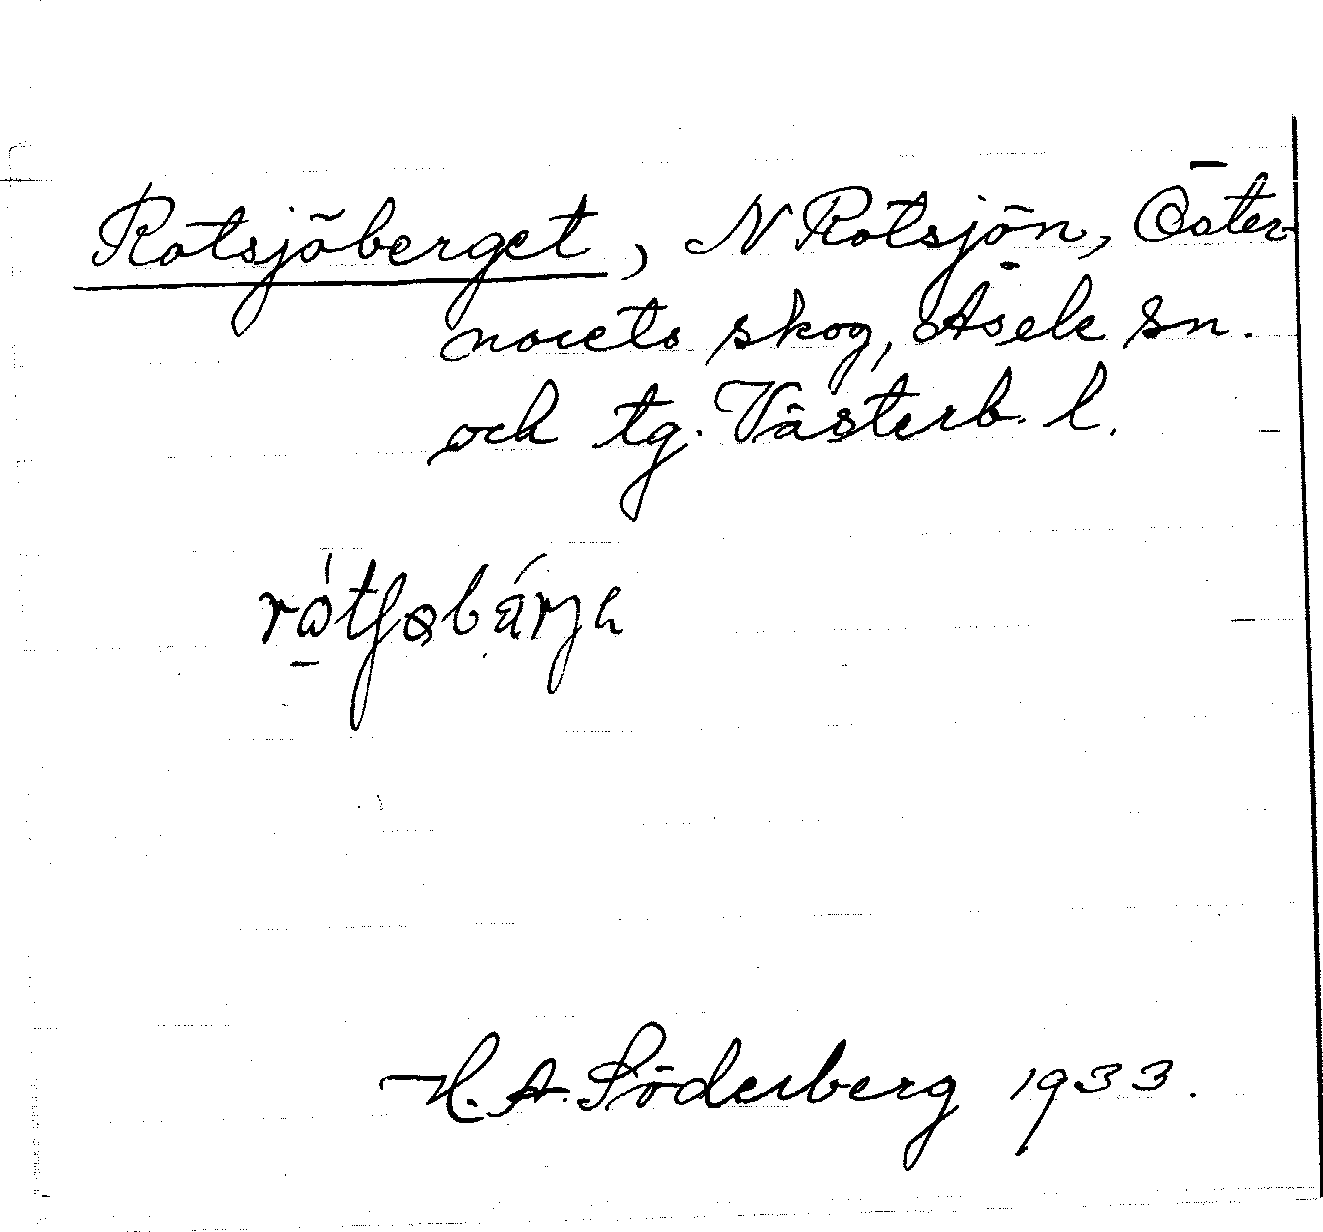 Rotsjöberget, N Rotsjön, Öster-
norets skog, Åsele sn.
och tg. Västerb. l.
H. A. Söderberg 1933.